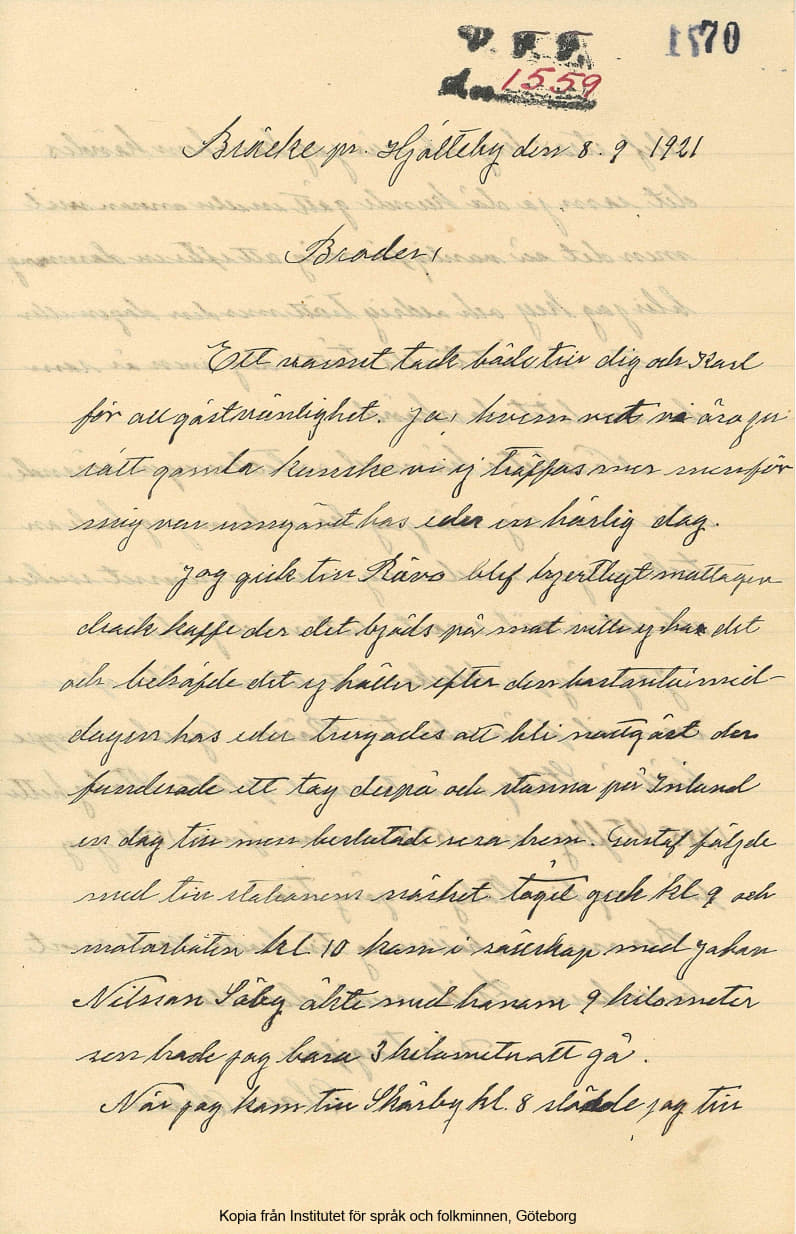 V. F. F.
1570
d. 1559
Bräcke pr. Hjälteby den 8. 9 1921
Broder,
Ett varmt tack både till dig och Karl
för all gästvänlighet. Ja, hvem vet vi äro ju
rätt gamla kanske vi ej träffas mer men för
mig var umgänet hos eder en härlig dag.
Jag gick till Rävo blef hjertligt mottagen
drack kaffe der det bjöds på mat ville ej ha det
och behöfde det ej häller efter den bastanta mid-
dagen hos eder trugades att bli nattgäst der
funderade ett tag derpå och stanna på Inland
en dag till men beslutade resa hem. Gustaf följde
med till stationens tåget gick kl 9 och
motorbåten kl. 10 kom i sällskap med Johan
Nilsson Säby åkte med honom 9 kilometer
sen hade jag bara 3 kilometer att gå.
När jag kom till Skärby kl. 8 jag till
Kopia från Institutet för språk och folkminnen, Göteborg